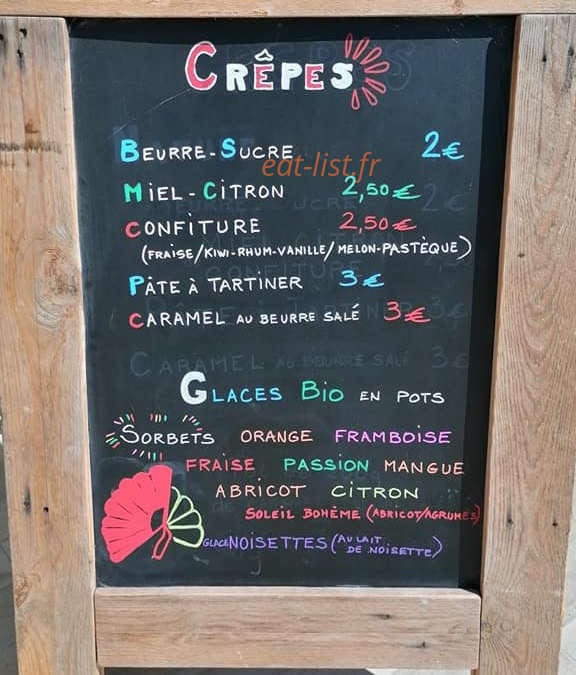 CRÊPES
BEURRE-SUCRE 2€
eat-list.fr
MIEL-CITRON 2,50€
CONFITURE 2,50€
(FRAISE/KIWI-RHUM-VANILLE/MELON-PASTÈQUE)
PÂTE À TARTINER 3€
CARAMEL AU BEURRE SALÉ 3€
CARAMEL AU BEURRE SALÉ 3€
GLACES BIO EN POTS
SORBETS ORANGE FRAMBOISE
FRAISE PASSION MANGUE
ABRICOT CITRON
SOLEIL BOHÈME (ABRICOT/AGRUMES)
GLACE NOISETTES (AU LAIT
DE NOISETTE)